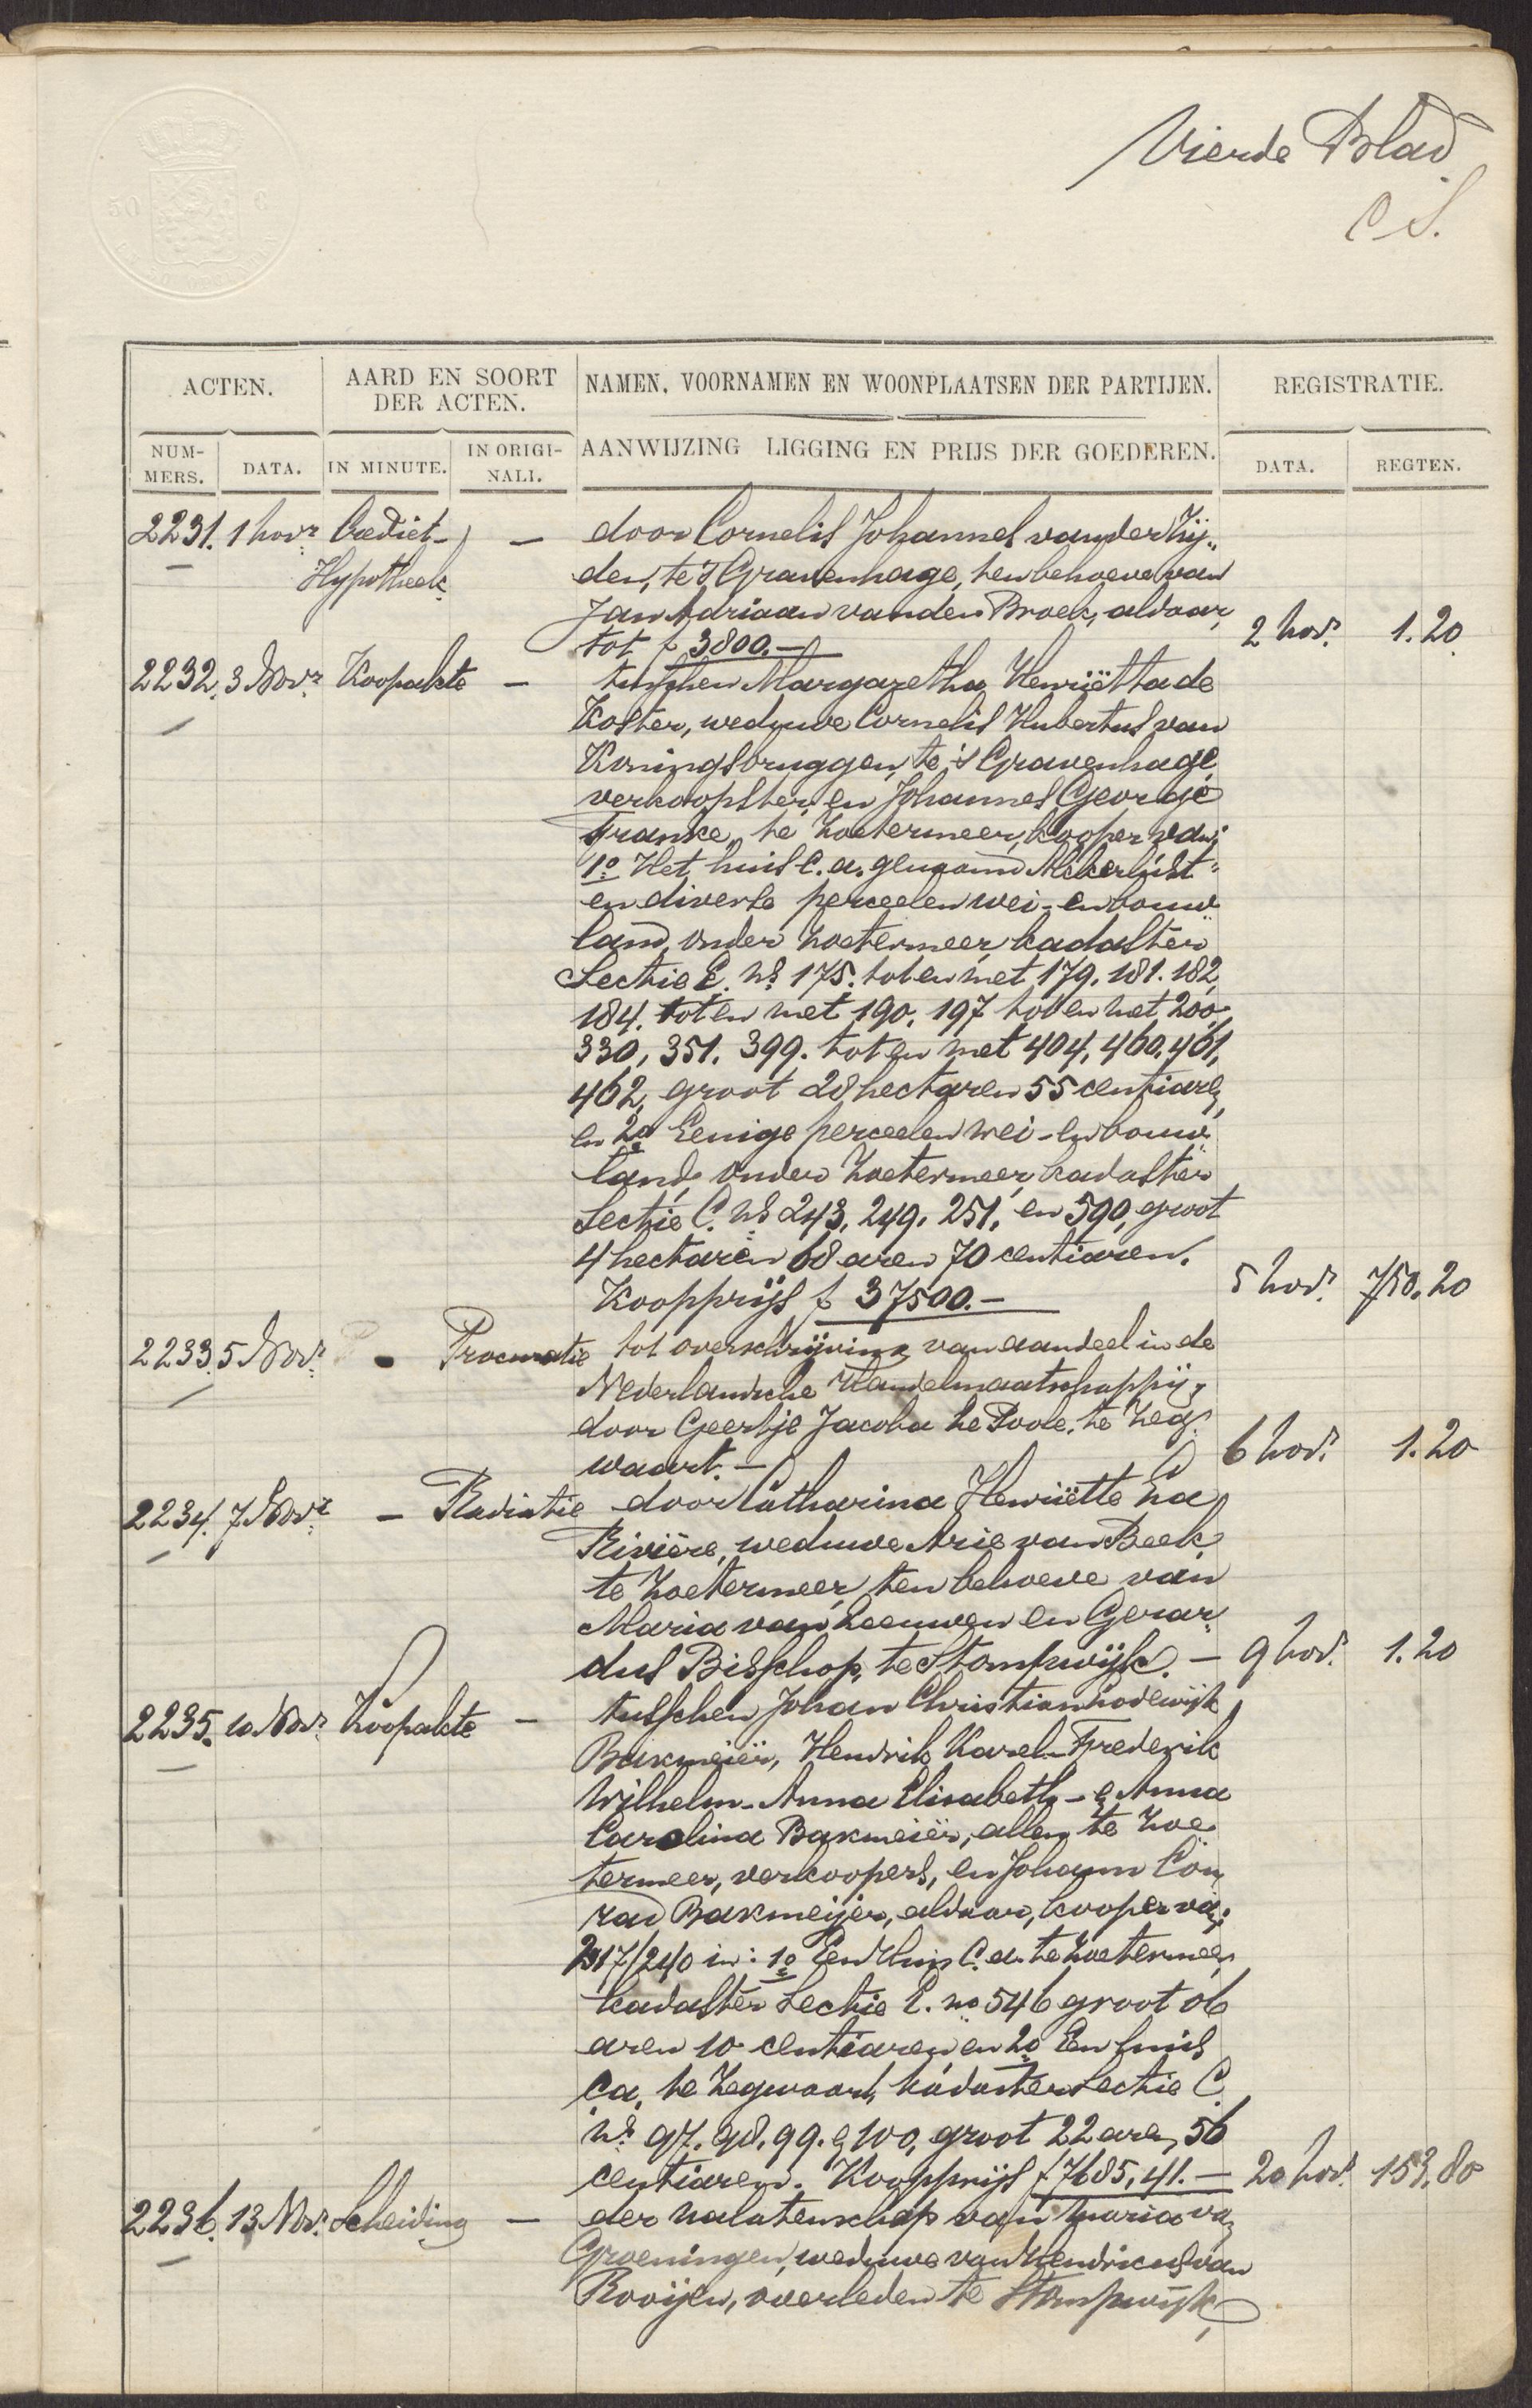 Vierde Blad
C S.
50 C
ACTEN.
AARD EN SOORT
DER ACTEN.
NAMEN, VOORNAMEN EN WOONPLAATSEN DER PARTIJEN.
REGISTRATIE.
NUM-
MERS.
DATA.
IN MINUTE.
IN ORIGI-
NALI.
AANWIJZING LIGGING EN PRIJS DER GOEDEREN.
DATA.
REGTEN.
2231. 1 Novr. Crediet- — door Cornelis Johannes van der Zij-
Hypotheek den, te 's Gravenhage, ten behoeve van
Jan Adriaan van den Broek, aldaar,
tot f 3800.— 2 Nov. 1.20
2232. 3 Novr. Koopakte — tusschen Margaretha Henriëtta de
Koster, weduwe Cornelis Hubertus van
Koningsbruggen, te 's Gravenhage,
verkoopster, en Johannes George
Franke, te Zoetermeer, kooper van:
1o. Het huis c.a. genaamd Meerlust"
en diverse perceelen wei- en bouw-
land, onder Zoetermeer, kadaster
Sectie E. Ns. 175. tot en met 179. 181. 182,
184. tot en met 190. 197 tot en met 200.
330, 351. 399. tot en met 404, 460. 461,
462, groot 28 hectaren 55 centiaren,
en 2o Eenige perceelen wei- en bouw-
land onder Zoetermeer, kadaster
Sectie C. Ns 243, 249. 251. en 590, groot
4 hectaren 68 aren 70 centiaren.
Koopprijs f 37500.— 5 Nov. 750.20
2233. 5 Novr. - Procuratie tot overschrijving van aandeel in de
Nederlandsche Handelmaatschappij,
door Geertje Jacoba le Poole, te Zeg-
waart.— 6 Nov. 1.20
2234. 7 Novr. — Radiatie door Catharina Henriëtte La
Rivière, weduwe Arie van Beek,
te Zoetermeer, ten behoeve van
Maria van Leeuwen en Gerar-
dus Bisschop, te Stompwijk. — 9 Nov. 1.20
2235. 10 Novr. Koopakte — tusschen Johan Christian Lodewijk
Bakmeier, Hendrik Karel- Frederik
Wilhelm- Anna Elisabeth- en Anna
Carolina Bakmeier, allen te Zoe-
termeer, verkoopers, en Johann Con-
rad Bakmeijer, aldaar, kooper van:
217/240 in: 1o Een Huis C.a. te Zoetermeer
kadaster Sectie E. no 546 groot 06
aren 10 centiaren, en 2o Een huis
C.a, te Zegwaart, kadaster Sectie C.
Ns 97. 98. 99. en 100, groot 22 aren 56
centiaren. Koopprijs f 7685,41.— 20 Nov. 153.80
2236. 13 Nov. Scheiding — der nalatenschap van Maria van
Groeningen, weduwe van Hendricus van
Rooijen, overleden te Stompwijk,